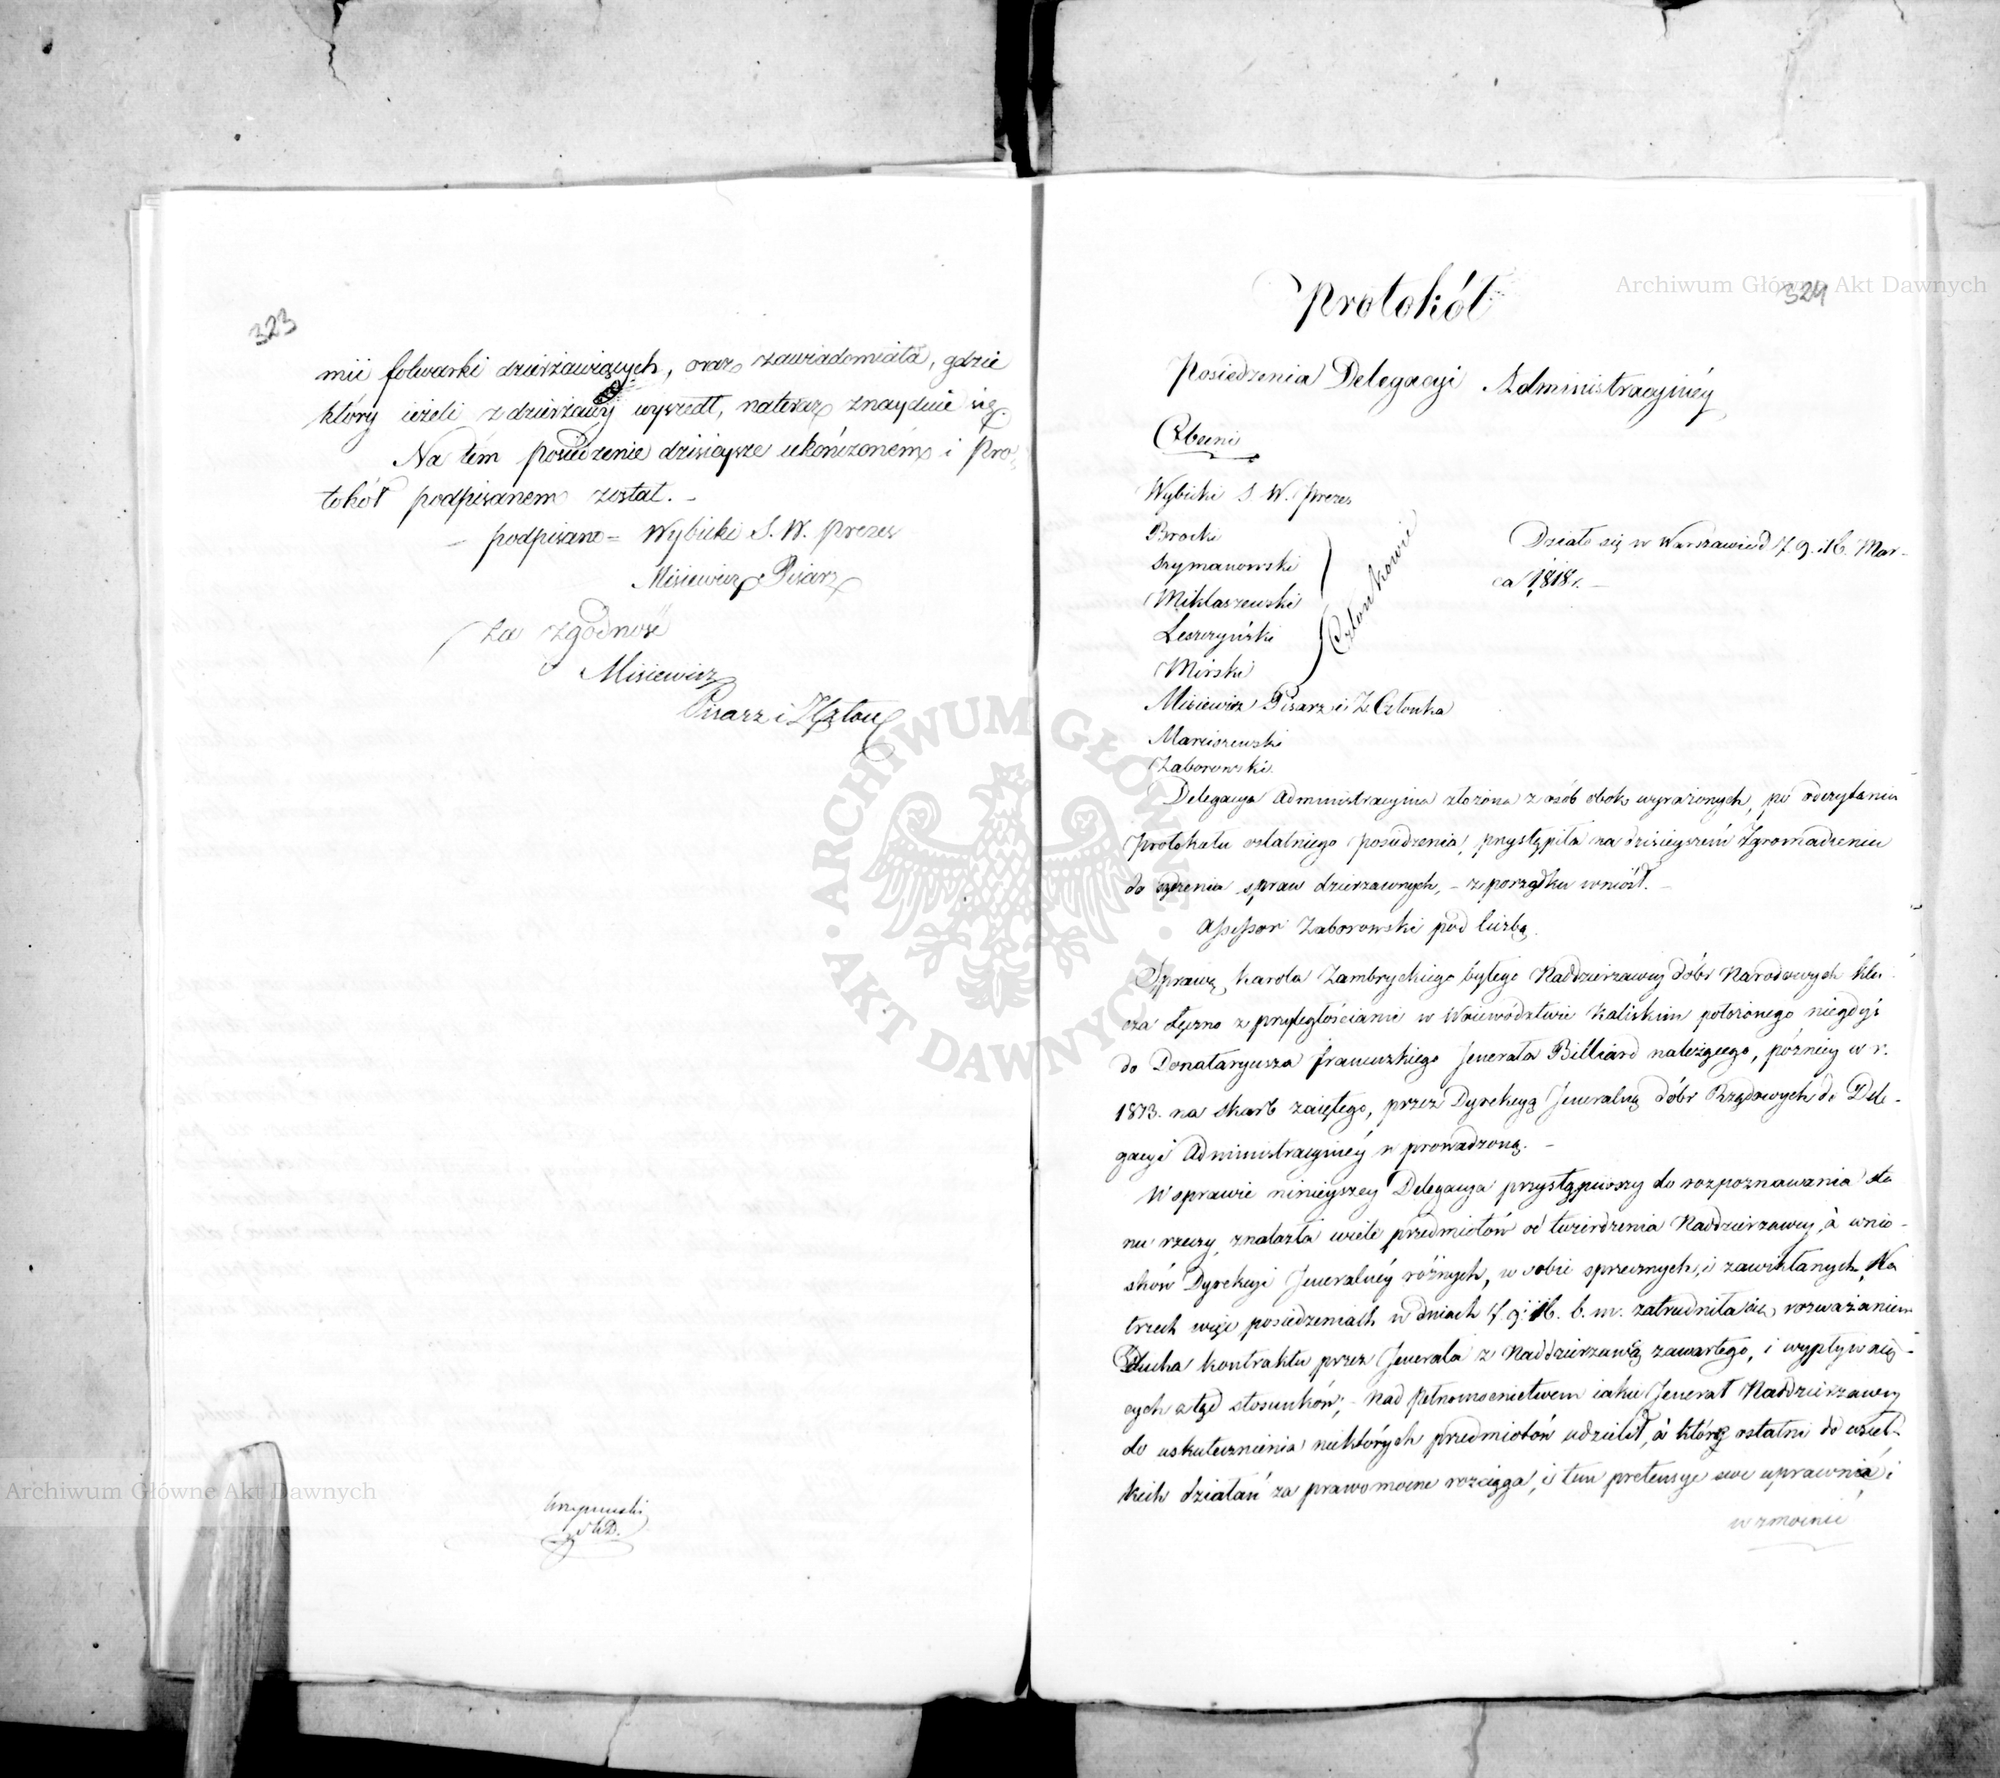 323
mii folwarki dzierżawiących, oraz zawiadomiała, gdzie
który ieżeli z dzierżawy wyszedł, nateraz znayduie się.
Na tém posiedzenie dzisieysze ukończonem i Pro-
tokół podpisanem został. –
– podpisano = Wybicki S. W. Prezes
Misiewicz Pisarz
Za zgodność
Misiewicz
Pisarz i Z. Człon
324
Protokół
Posiedzenia Delegacyi Administracyinéy
Obecni
Wybicki S. W. Prezes
Brocki
Szymanowski
Miklaszewski
Leszczyński
Mirski
Członkowie
Misiewicz Pisarz i Z. Członka
Marciszewski
Zaborowski
Działo się w Warszawie d. 7. 9. i 16. Mar-
ca 1818 r. –
Delegacya Administracyina złożona z osób obok wyrażonych, po odczytaniu
Protokułu ostatniego posiedzenia, przystąpiła na dzisieyszem Zgromadzeniu
do sądzenia spraw dzierzawnych, – z porządku wniósł. –
Assessor Zaborowski pod liczbą.
Sprawę Karola Zambrzyckiego byłego Naddzierzawcy dóbr Narodowych klu-
cza Łęzno z przyległościami w Woiewództwie Kaliskim położonego niegdyś
do Donataryusza francuzkiego Jenerała Billiard należącego, późniey w r.
1813. na skarb zaiętego, przez Dyrekcyą Jeneralną dóbr Rządowych do Dele-
gacyi Administracyinéy wprowadzoną. –
W sprawie ninieyszey Delegacya przystąpiwszy do rozpoznawania sta
nu rzeczy, znalazła wiele przedmiotów od twierdzenia Naddzierzawcy, à wnio-
sków Dyrekcyi Jeneralnéy różnych, w sobie sprzecznych, i zawikłanych. Na
trzech więc posiedzeniach w dniach 7. 9. i 16. b. m. zatrudniła się rozważaniem
Ducha kontraktu przez Jenerała z Naddzierzawcą zawartego, i wypływaią-
cych ztąd stosunków; – nad pełnomocnictwem iakie Jenerał Naddzierzawcy
do uskutecznienia niektórych przedmiotów udzielił, à które ostatni do wszel-
kich działań za prawomocne rozciąga, i tem pretensye swe uprawnia, i
wzmocnić
Archiwum Główne Akt Dawnych
Archiwum Główne Akt Dawnych
ARCHIWUM GŁÓWNE · AKT DAWNYCH ·